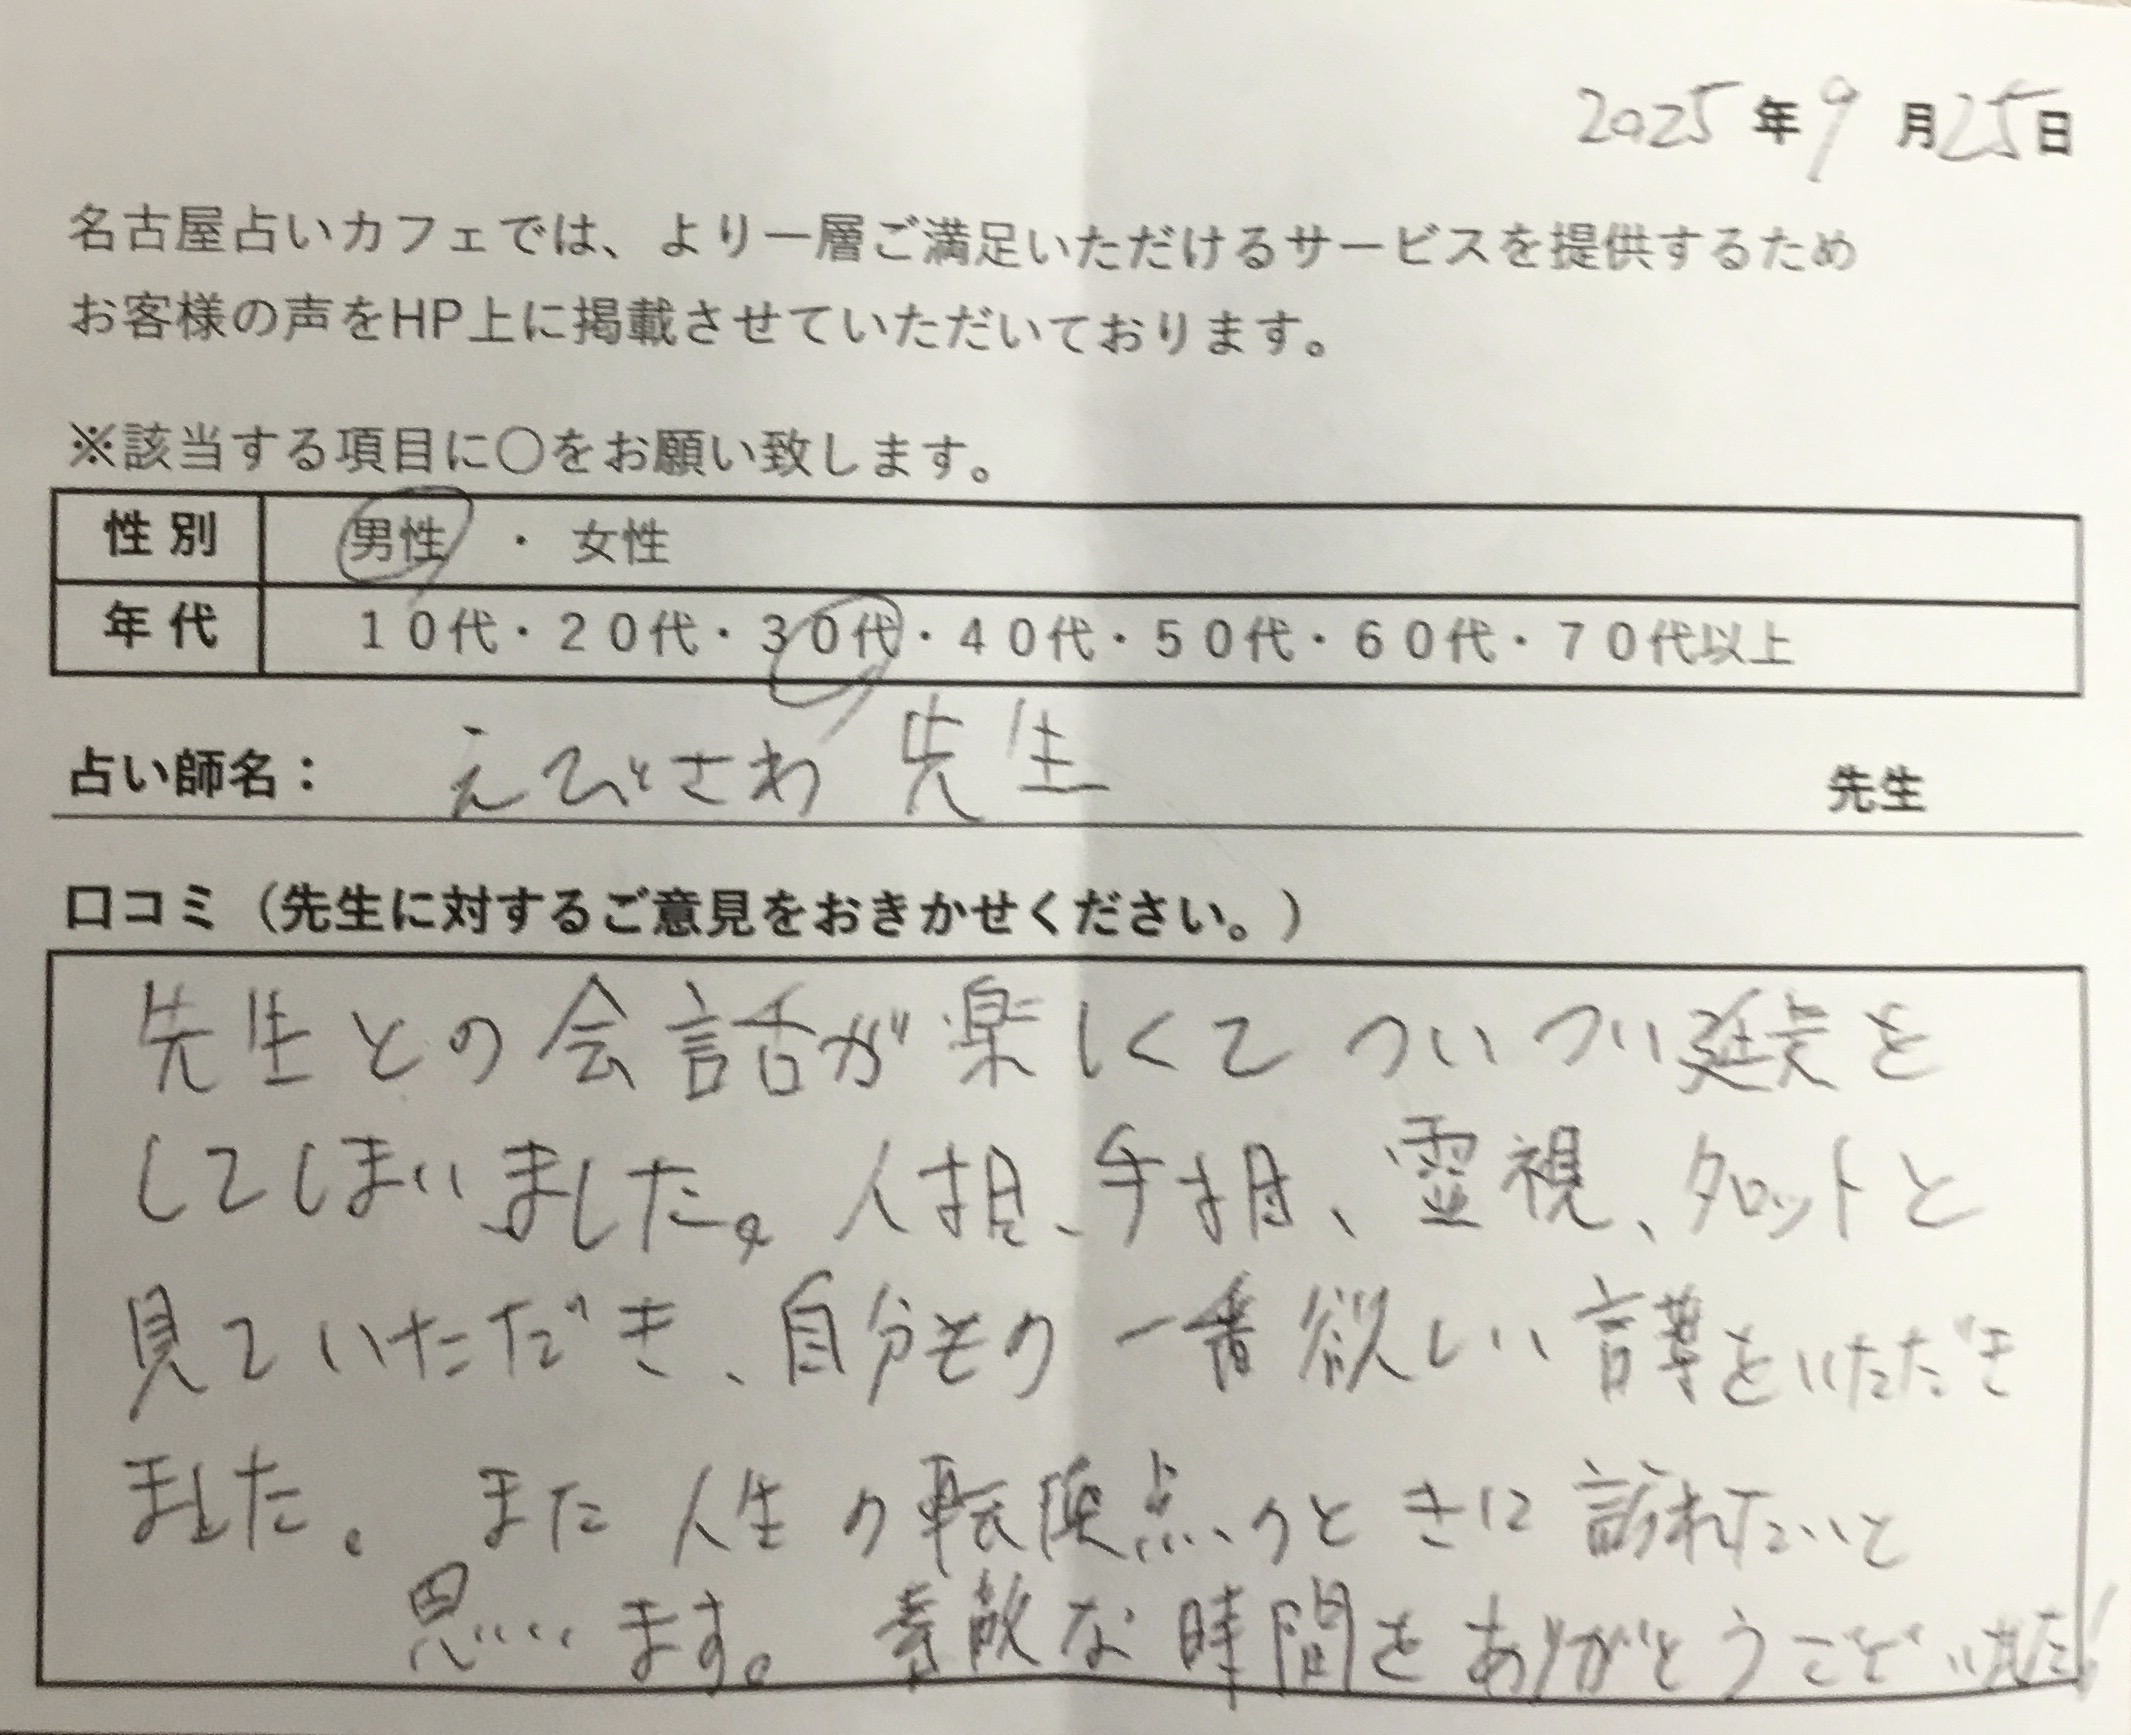 2025年9月25日
名古屋占いカフェでは、より一層ご満足いただけるサービスを提供するため
お客様の声をHP上に掲載させていただいております。
※該当する項目に〇をお願い致します。
性別 男性 ・ 女性
年代 10代・20代・30代・40代・50代・60代・70代以上
占い師名： えびさわ先生 先生
口コミ（先生に対するご意見をおきかせください。）
先生との会話が楽しくてついつい延長を
してしまいました。人相、手相、霊視、タロットと
見ていただき、自分その一番欲しい言葉をいただき
ました。また人生の転換点のときに訪れたいと
思います。素敵な時間をありがとうございました！